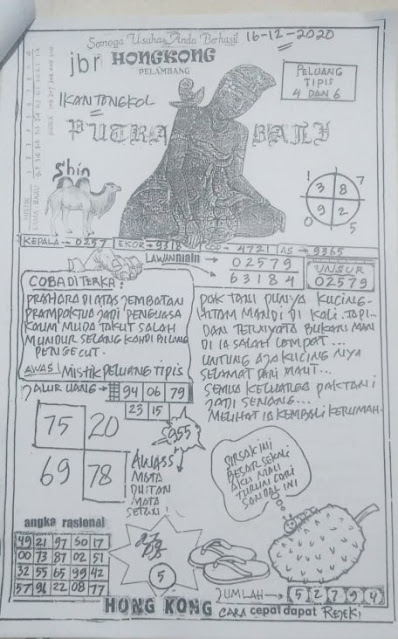 Semoga Usaha Anda Berhasil 16-12-2020
jbr HONGKONG
PELAMBANG
PELUANG
TIPIS
4 DAN 6
IKAN TONGKOL
PUTRA BALI
Shio
1 3 8 7
0 9 2 5
KEPALA → 0257 EKOR → 9318 COP → 4721 AS → 9365
LAWAN main 02579
63184
UNSUR
02579
COBA DI TERKA:
PRAHARA DI ATAS JEMBATAN
PRAMPAKTUA JADI PENGUASA
KAUM MUDA TAKUT SALAH
MUNDUR SELANGKAH DI BILANG
PENGECUT.
AWAS! MISTIK PELUANG TIPIS
JALUR UANG → 94 06 79
23 15
PAK TANI PUNYA KUCING
HITAM MANDI DI KALI. TAPI..
DAN TERNYATA BUKAN MAN
DI IA SALAH LOMPAT...
UNTUNG AJA KUCING NYA
SELAMAT DARI MAUT...
SEMUA KELUARGA PAK TANI
JADI SENANG...
MELIHAT IA KEMBALI KERUMAH.
75 20
69 78
955
AWASS
MATA
DUITAN
MATA
SETAN!
SIRSAK INI
BESAR SEKALI
AKU MAU
TURUN CARI
SANDAL INI
angka rasional
49 21 97 50 17
00 73 87 02 51
32 55 65 99 42
57 96 22 08 77
5
JUMLAH → 5 2 7 9 4
HONG KONG CARA cepat dapat REJEKI